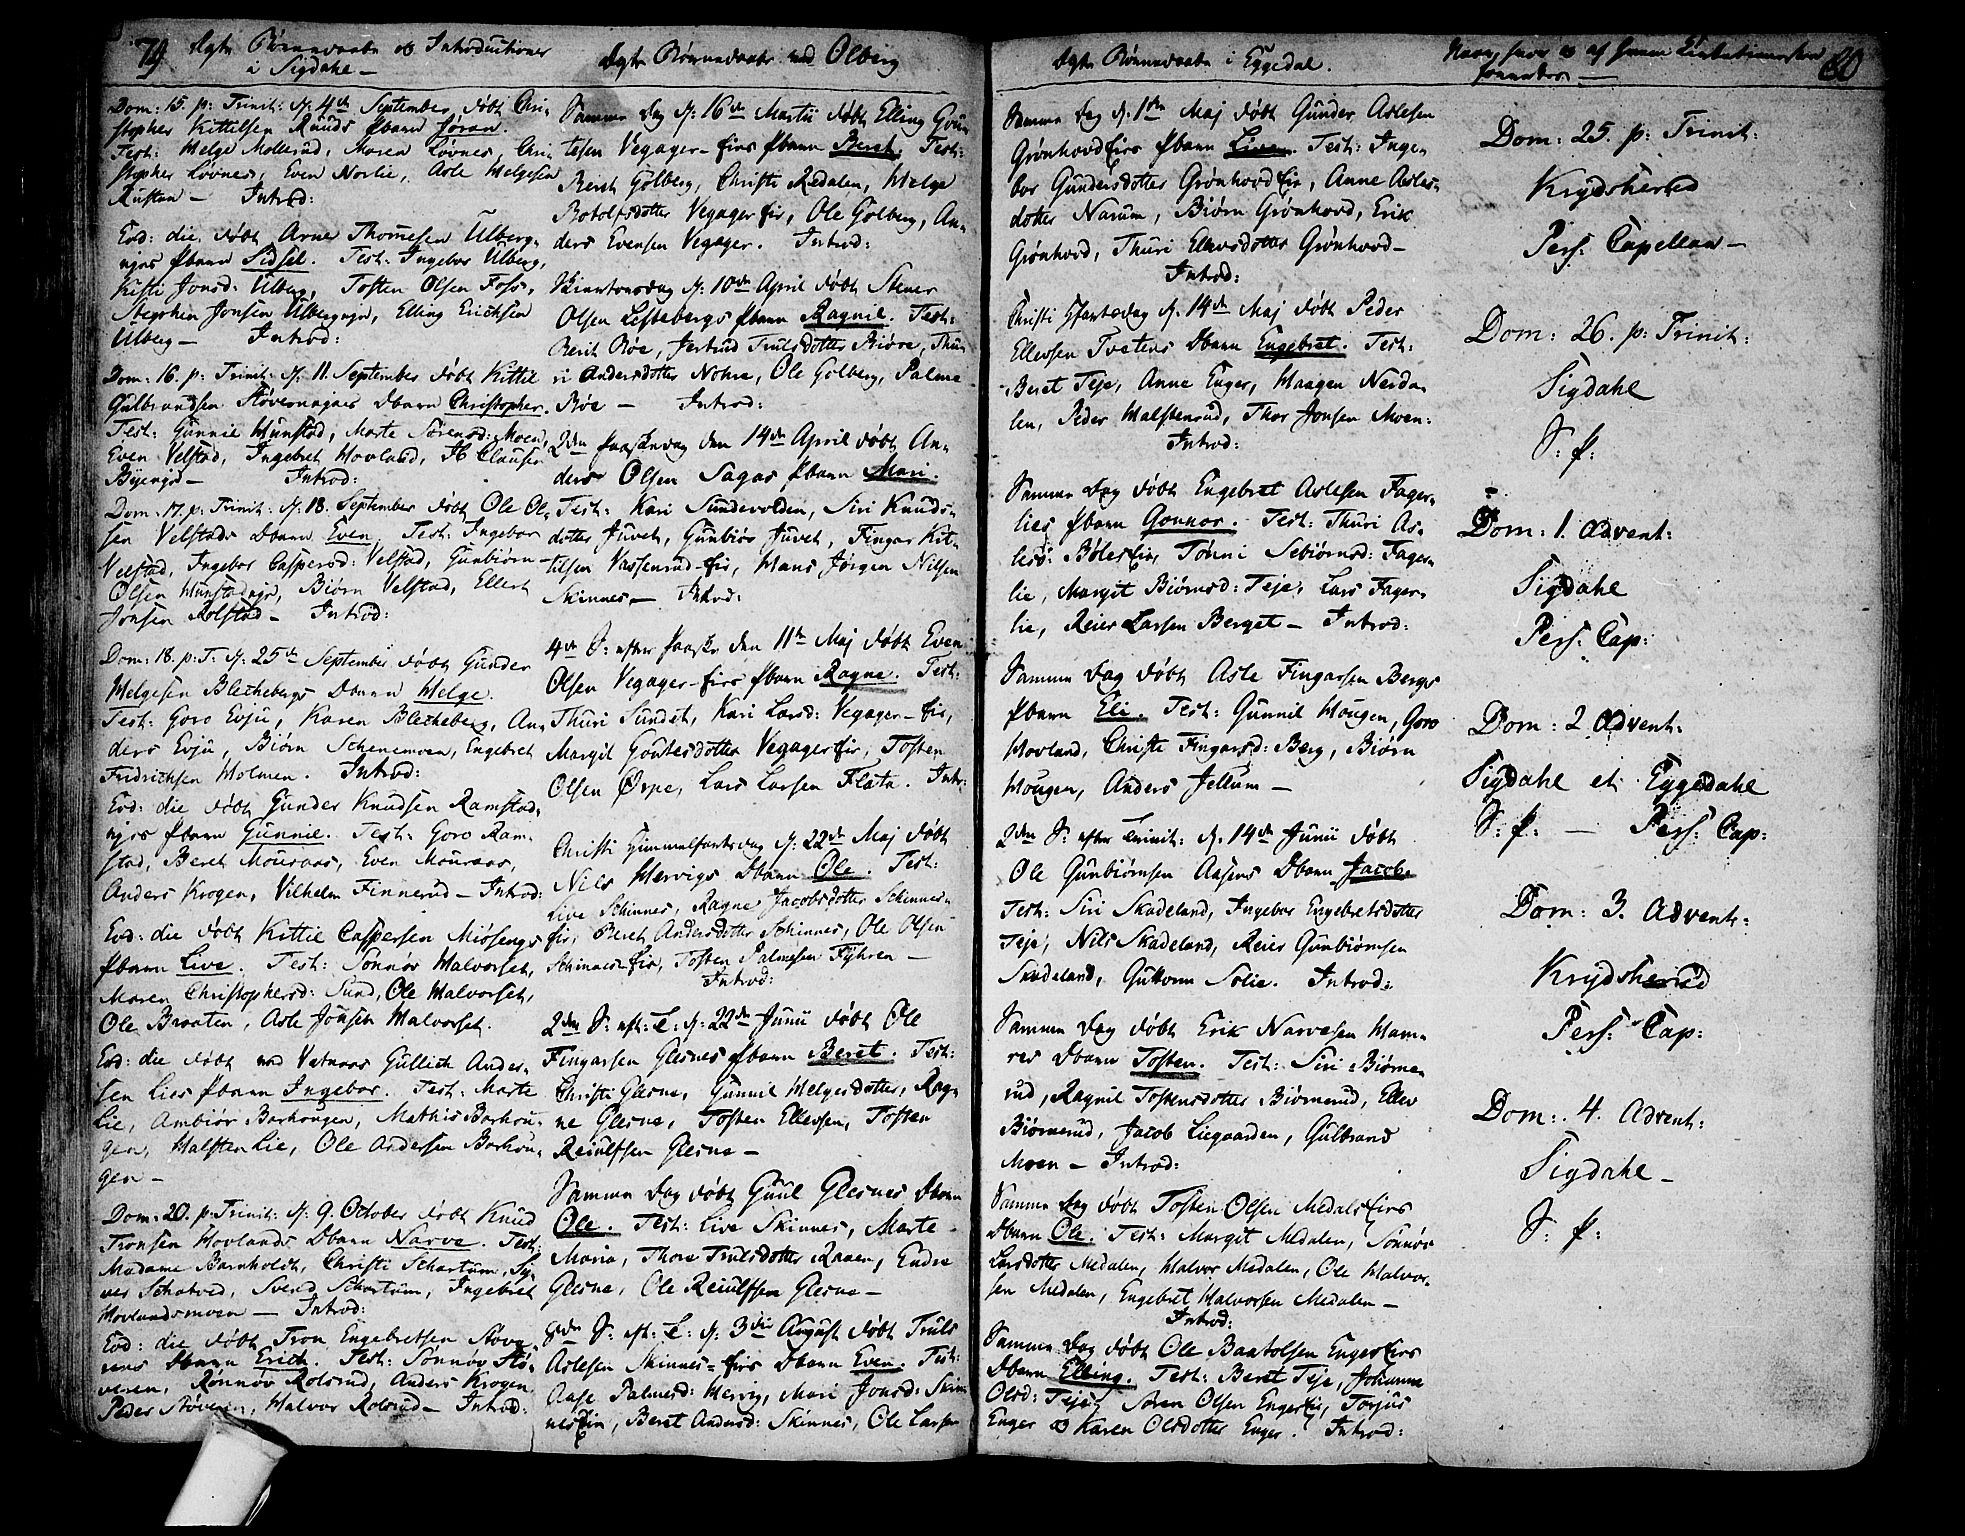 79
Ægte Børnedaab og Introductioner
i Sigdahl –
Dom: 15. p: Trinit: d: 4de September døbt Chri-
stopher Kittilsen Ruuds Pbarn Jøran.
Test: Helge Mollerud, Maren Løvnes, Chri-
stopher Løvnes, Even Norlie, Asle Helgesen
Rustan – Introd:
Eod: die, døbt Arne Thomesen Ulberg-
ejes Pbarn Sidsel. Test: Ingebor Ulberg,
Kisti Jonsd: Ulberg, Tosten Olsen Foss,
Stephen Jonsen Ulbergejd, Elling Erichsen
Ulberg – Introd:
Dom: 16. p: Trinit: d: 11. September døbt Kittil
Gulbrandsen Støvernejes Dbarn Christopher.
Test: Gunnil Munstad, Marte Sørensd: Moen,
Even Velstad, Ingebret Hovland, Ib Clausen
Byeng – Introd:
Dom: 17. p: Trinit: d. 18. September døbt Ole Ol-
sen Velstads Dbarn Even, Test: Ingebor
Velstad, Ingebor Caspersd: Velstad, Gunbiørn
Olsen Munstadejd, Biørn Velstad, Ellert
Jonsen Rolstad – Introd:
Dom: 18. p: T: d: 25de September døbt Gunder
Helgesen Blecheberg Dbarn Helge.
Test: Goro Evju, Karen Blecheberg, An-
ders Evju, Biørn Schenemoen, Engebret
Fridrichsen Holmen. Introd:
Eod: die døbt Gunder Knudsen Ramstad-
ejes Pbarn Gunnil. Test: Goro Ram-
stad, Beret Mouraas, Even Mouraas,
Anders Krogen, Vilhelm Finnerud – Introd:
Eod: die døbt Kittil Caspersen Missengs
Pbarn Live. Test: Sønnøv Halvorset,
Maren Christophersd: Sund, Ole Halvorset,
Ole Braaten, Asle Jonsen Halvorset.
Eod: die døbt ved Vatnaas Gullich Ander-
sen Lies Pbarn Ingebor. Test: Marte
Lie, Ambiør Borhougen, Mathis Borhou-
gen, Halsten Lie, Ole Andersen Borhou-
gen –
Dom: 20. p: Trinit: d: 9. October døbt Knud
Tronsen Hovlands Dbarn Narve. Test:
Madame Barnholdt, Christi Schartum, Sy-
ver Schatved, Svend Schartum, Ingebret
Hovlandsmoen – Introd:
Eod: die døbt Tron Engebretsen Støve-
rens Dbarn Erich. Test: Sønnøv Stø-
veren, Rønnøv Rolsrud, Anders Krogen
Peder Støveren, Halvor Rolsrud – Introd:
Ægte Børnedaab ved Olberg
Samme Dag d: 16de Martii døbt Elling Goun-
tesen Vegager-Eies Pbarn Beret. Test:
Berit Golberg, Christi Redalen, Helge
Botolfsdotter Vegager Eie, Ole Golberg, An-
ders Evensen Vegager. Introd:
Skiærtorsdag d: 10de April døbt Stener
Olsen Leftebergs Pbarn Ragnil. Test:
Berit Røe, Jertrud Trulsdotter Biøre, Thu-
ri Andersdotter Nohre, Ole Golberg, Palme
Røe – Introd:
2den Paaskedag den 14de April døbt An-
ders Olsen Sagas Pbarn Mari.
Test: Kari Sundevolden, Siri Knuds-
dotter Juvet, Gunbiør Juvet, Fingar Kit-
tilsen Vassenrud-Eie, Hans Jørgen Nilsen
Skinnes – Introd:
4de S: efter Paaske den 11te Maj døbt Even
Olsen Vegager-Eies Pbarn Ragne. Test:
Thuri Sundet, Kari Larsd: Vegager-Eie,
Margit Gountesdotter Vegager Eie, Tosten
Olsen Ørpe, Lars Larsen Flata. Intr:
Christi Himmelfartsdag d: 22de Maj døbt
Nils Hervigs Dbarn Ole. Test:
Live Schinnes, Ragne Jacobsdotter Schinnes-
Eie, Beret Andersdotter Schinnes, Ole Olsen
Schinnes-Eie, Tosten Palmesen Fyhren –
Introd:
2den S: eft: T: d: 22de Junii døbt Ole
Fingarsen Glesnes Pbarn Beret. Test:
Christi Glesne, Gunnil Helgesdotter, Rag-
ne Glesne, Tosten Ellevsen, Tosten
Reiulfsen Glesne –
Samme Dag døbt Guul Glesnes Dbarn
Ole. Test: Live Skinnes, Marte
Maria, Thore Trulsdotter Raaen, Endre
Glesne, Ole Reiulfsen Glesne –
8de S: eft: T: d: 3die August døbt Truls
Aslesen Skinnes-Eies Dbarn Even. Test:
Aase Palmesd: Hervig, Mari Jonsd: Skin-
nesEie, Beret Andersd: Skinnes, Ole Larsen
Ægte Børnedaab i Eggedal.
Samme Dag d: 1ste Maj døbt Gunder Aslesen
GrønhovdEies Pbarn Live. Test: Inge-
bor Gundersdotter GrønhovdEie, Anne Asles-
dotter Narum, Biørn Grønhovd, Erik
Grønhovd, Thuri Ellevsdotter Grønhovd –
Introd:
Christi Hfartsdag d: 14de Maj døbt Peder
Ellevsen Tvetens Dbarn Engebret. Test:
Beret Teje, Anne Enger, Haagen Nerda-
len, Peder Halstenrud, Thor Jonsen Moen:
Introd:
Samme Dag døbt Engebret Aslesen Fager-
lies Pbarn Gonnor. Test: Thuri As-
lesd: BølesEie, Tønni Sebiørnsd: Fager-
lie, Margit Biørnsd: Teje, Lars Fager-
lie, Reier Larsen Berget – Introd:
Samme Dag døbt Asle Fingarsen Bergs
Pbarn Eli. Test: Gunnil Hougen, Goro
Hovland, Christi Fingarsd: Berg, Biørn
Hougen, Anders Jellum –
2den S: efter Trinit: d: 14de Junii døbt
Ole Gunbiørnsen Aasens Dbarn Jacob.
Test: Siri Skadeland, Ingebor Engebretsdotter
Teje, Nils Skadeland, Reier Gunbiørnsen
Skadeland, Guttorm Solie. Introd:
Samme Dag døbt Erik Narvesen Ham-
res Dbarn Tosten. Test: Siri Biørne-
rud, Ragnil Tostensdotter Biørnerud, Ellev
Biørnerud, Jacob Liegaarden, Gulbrand
Moen – Introd:
Samme Dag døbt Tosten Olsen MedalsEies
Dbarn Ole. Test: Margit Medalen, Sønnøv
Larsdotter Medalen, Halvor Medalen, Ole Halvor-
sen Medalen, Engebret Halvorsen Medalen –
Introd:
Samme Dag døbt Ole Baatolsen EngersEies
Dbarn Elling. Test: Beret Teje, Johanna
Olsd: Teje, Søren Olsen EngerEie, Torjus
Enger og Karen Olsdotter Enger. Introd:
80
Dom: 25. p: Trinit:
Krydsherred
Pers: Capellan –
Dom: 26. p: Trinit:
Sigdahl
S: P:
Dom: 1. Advent:
Sigdahl
Pers: Cap:
Dom: 2. Advent:
Sigdahl et Eggedahl
S: P: – Pers: Cap:
Dom: 3. Advent:
Krydsherred
Pers: Cap:
Dom: 4. Advent:
Sigdahl –
S: P: